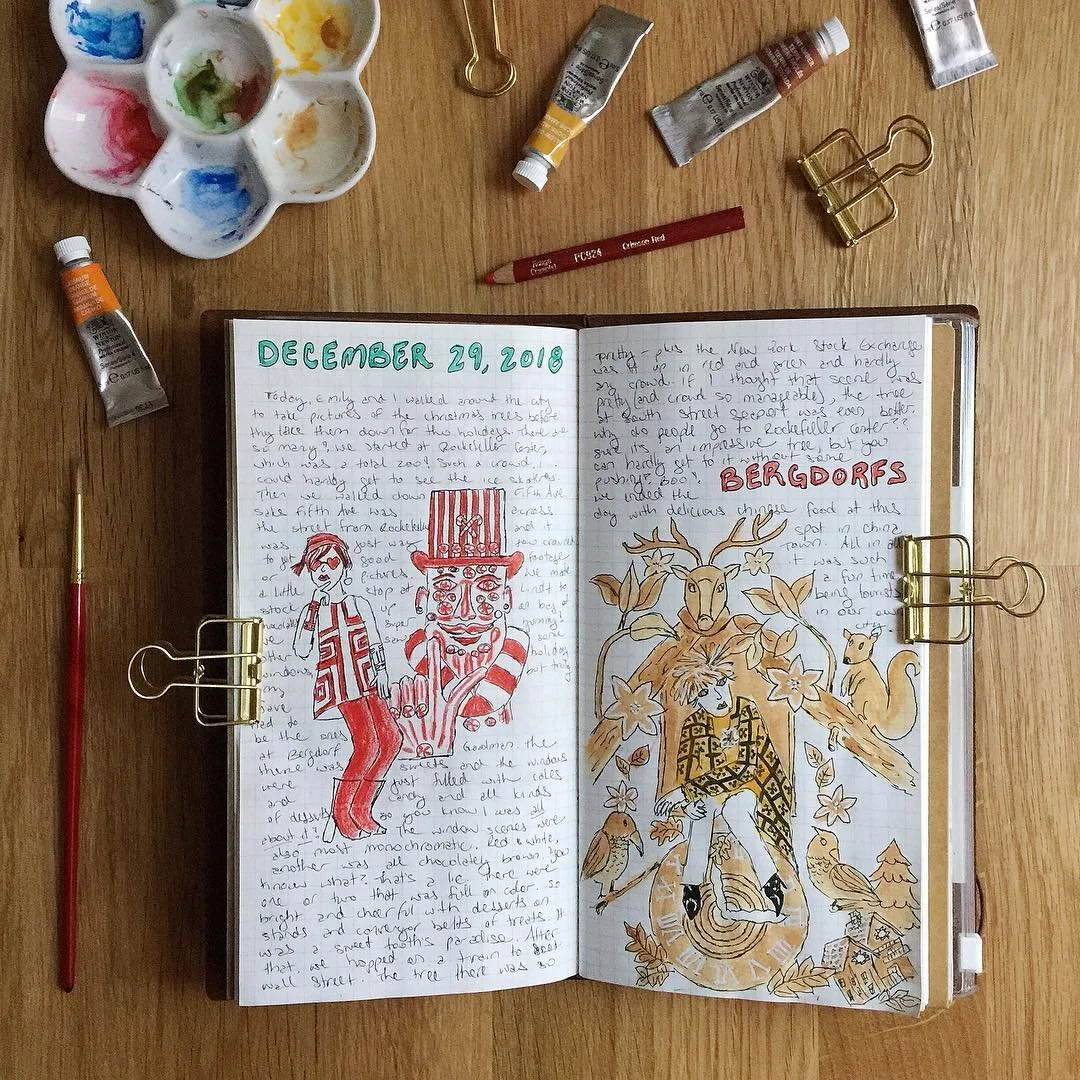 WINSOR & NEWTON
PC924 Crimson Red
DECEMBER 29, 2018
Today, Emily and I walked around the city
to take pictures of the christmas trees before
they take them down for the holidays. There are
so many! we started at Rockefeller Center,
which was a total zoo! Such a crowd, I
could hardly get to see the ice skaters.
Then we walked down Fifth Ave
Saks Fifth Ave was across
the street from Rockefeller and it
was just way too crowded
to get good footage
or pictures. We made
a little stop at Lindt to
stock up on hot
chocolate super yummy!
We saw some
other holiday
windows, but truly
my
have
had to
be the ones
at Bergdorf Goodman. the
theme was sweets and the windows
were just filled with cakes
and candy and all kinds
of desserts so you know I was all
about it! The window scenes were
also most monochromatic. Red & white,
another was all chocolatey brown. You
know what? That's a lie. There were
one or two that was full on color. so
bright and cheerful with desserts on
stands and conveyor belts of treats. It
was a sweet tooth's paradise. After
that, we hopped on a train to
wall street. The tree there was so
pretty - plus the New York Stock Exchange
was lit up in red and green and hardly
any crowd. if I thought that scene was
pretty (and crowd so manageable), the tree
at South Street Seaport was even better.
why do people go to Rockefeller Center??
sure its an impressive tree, but you
can hardly get to it without some
pushing. Boo!
BERGDORFS
we ended the
day with delicious chinese food at this
spot in china
town. All in all
it was such
a fun time
being tourists
in our own
city.